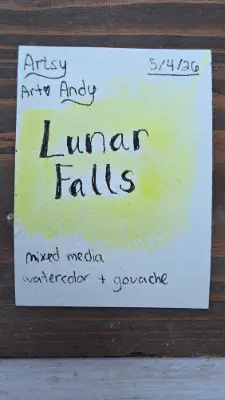 Artsy
5/4/26
Art♥ Andy
Lunar
Falls
mixed media
watercolor + gouache